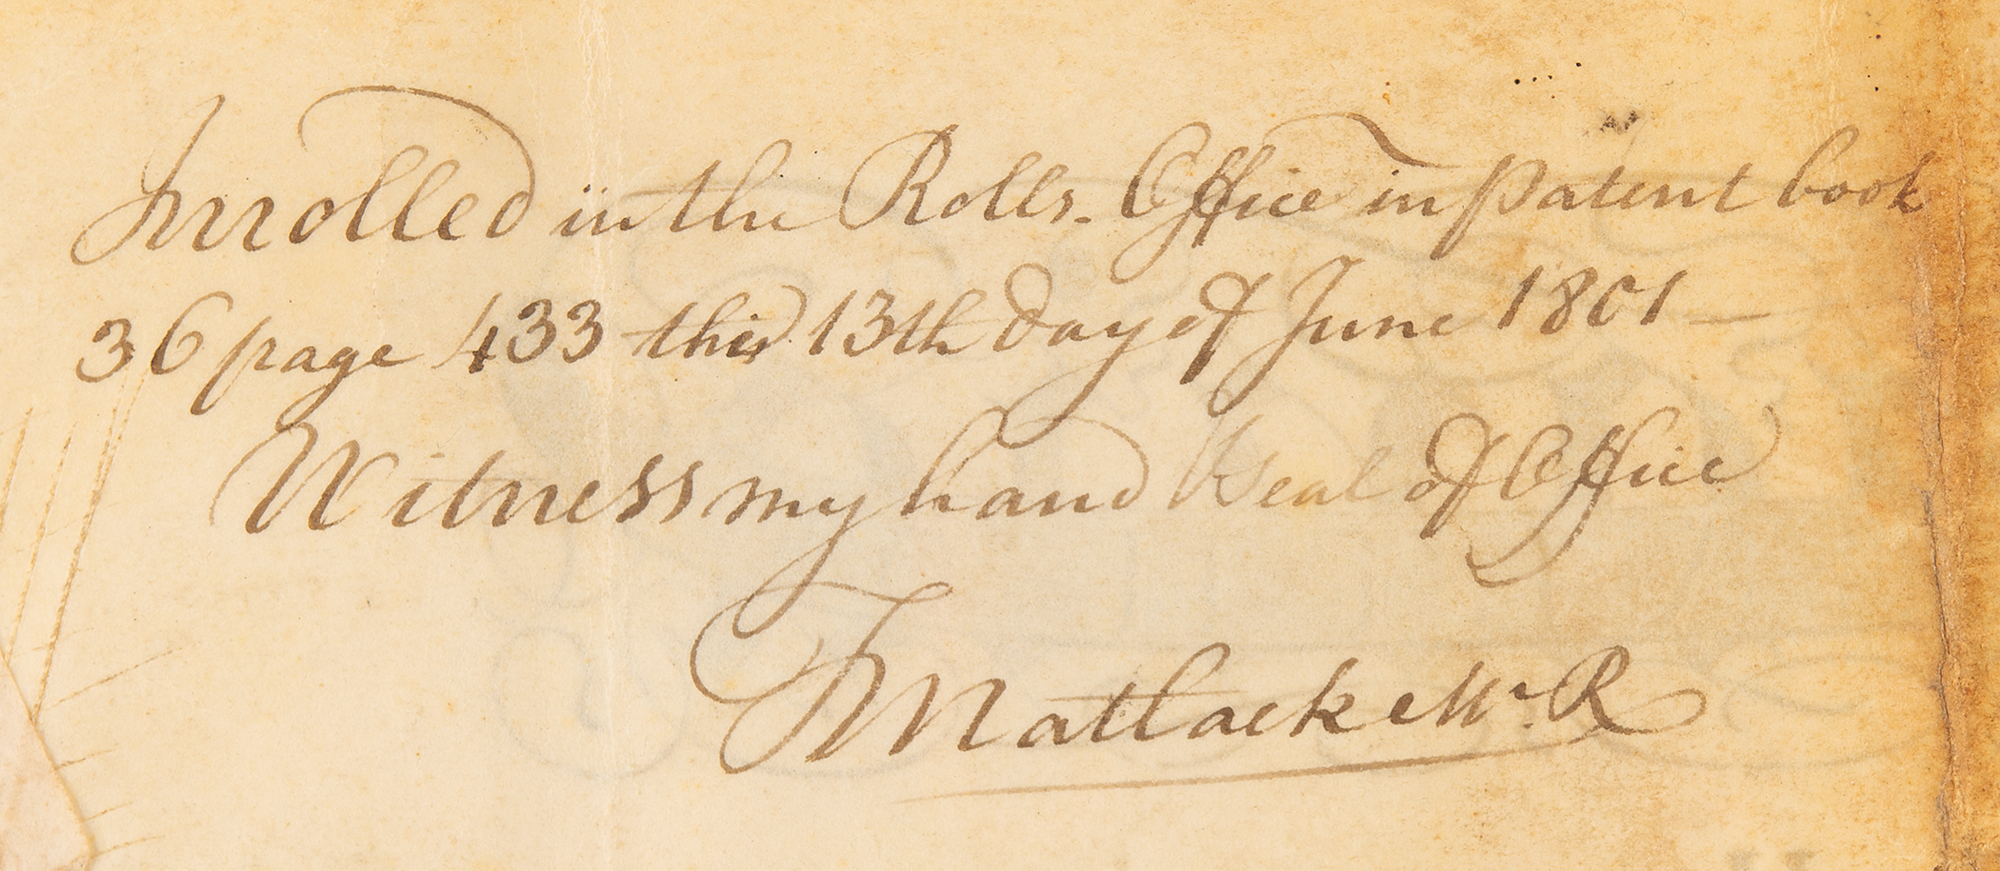 Inrolled in the Rolls-Office in patent book
36 page 433 this 13th Day of June 1801 —
Witness my hand & Seal of Office
TMatlack Mr. R